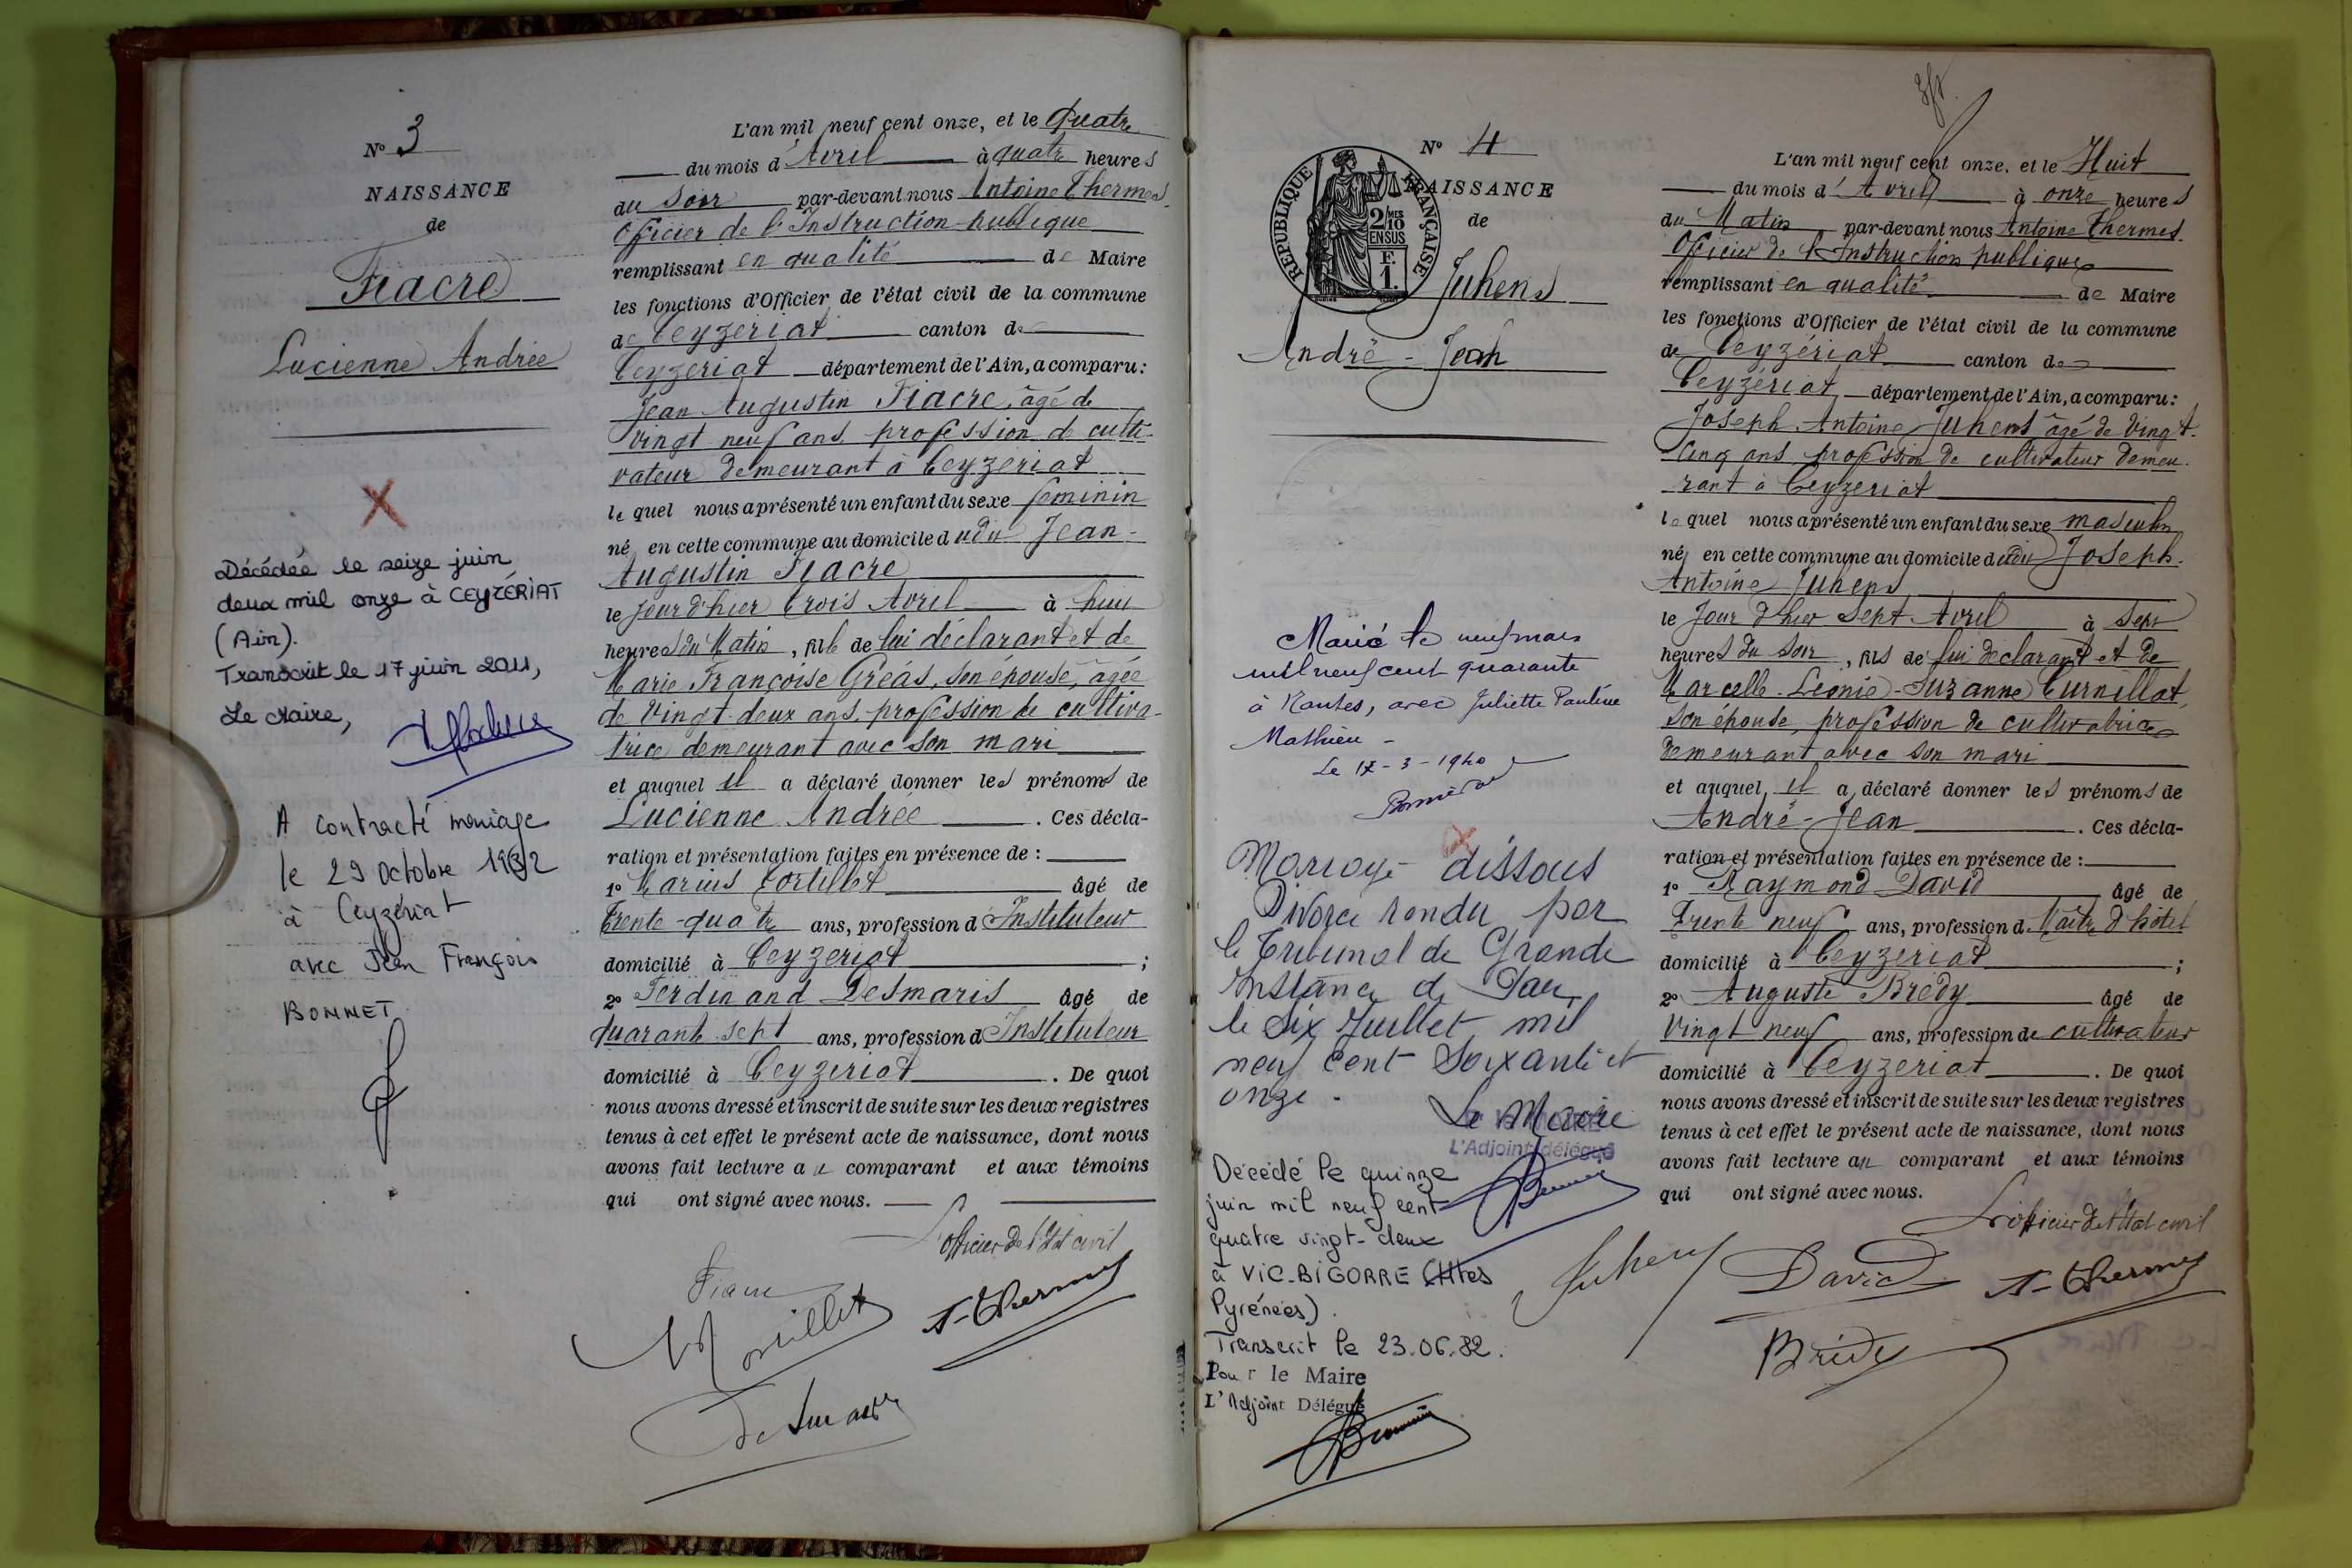 N° 3
NAISSANCE
de
Fiacre
Lucienne Andrée
Décédée le seize juin
deux mil onze à CEYZÉRIAT
(Ain).
Transcrit le 17 juin 2011,
Le Maire,
A contracté mariage
le 29 Octobre 1932
à Ceyzériat
avec Jean François
BONNET
L'an mil neuf cent onze, et le Quatre
du mois d'Avril à quatre heures
du Soir par-devant nous Antoine Thermes
Officier de l'Instruction publique
remplissant en qualité de Maire
les fonctions d'Officier de l'état civil de la commune
de Ceyzeriat canton de
Ceyzeriat département de l'Ain, a comparu :
Jean Augustin Fiacre, âgé de
vingt neuf ans profession de culti-
vateur demeurant à Ceyzeriat
lequel nous a présenté un enfant du sexe féminin
né en cette commune au domicile dudit Jean-
Augustin Fiacre
le jour d'hier trois Avril à huit
heures du Matin, fille de lui déclarant et de
Marie Françoise Gréas, son épouse, âgée
de Vingt-deux ans, profession de cultiva-
trice demeurant avec son mari
et auquel il a déclaré donner les prénoms de
Lucienne Andrée. Ces décla-
ration et présentation faites en présence de :
1° Marius Corillet âgé de
Trente-quatre ans, profession d'Instituteur
domicilié à Ceyzeriat ;
2° Ferdinand Desmaris âgé de
quarante sept ans, profession d'Instituteur
domicilié à Ceyzeriat. De quoi
nous avons dressé et inscrit de suite sur les deux registres
tenus à cet effet le présent acte de naissance, dont nous
avons fait lecture au comparant et aux témoins
qui ont signé avec nous.
L'officier de l'Etat civil
Fiacre
A. Thermes
N° 4
NAISSANCE
de
REPUBLIQUE FRANÇAISE
2/10 MES
EN SUS
F.
1.
Juhens
André-Jean
Marié le neuf mars
mil neuf cent quarante
à Nantes, avec Juliette Pauline
Mathieu -
Le 17-3-1940
Mariage dissous
Divorce rendu par
le Tribunal de Grande
Instance de Pau,
le six Juillet mil
neuf cent Soixante et
onze.
Le Maire
L'Adjoint délégué
Décédé le quinze
juin mil neuf cent
quatre vingt-deux
à VIC-BIGORRE (Htes
Pyrénées).
Transcrit le 23.06.82.
Pour le Maire
L'Adjoint Délégué
L'an mil neuf cent onze, et le Huit
du mois d'Avril à onze heures
du Matin par-devant nous Antoine Thermes
Officier de l'Instruction publique
remplissant en qualité de Maire
les fonctions d'Officier de l'état civil de la commune
de Ceyzériat canton de
Ceyzériat département de l'Ain, a comparu :
Joseph Antoine Juhens âgé de Vingt-
cinq ans profession de cultivateur demeu-
rant à Ceyzeriat
lequel nous a présenté un enfant du sexe masculin
né en cette commune au domicile dudit Joseph
Antoine Juhens
le Jour d'hier Sept Avril à Sept
heures du Soir, fils de lui déclarant et de
Marcelle-Léonie-Suzanne Curnillat,
son épouse, profession de cultivatrice
demeurant avec son mari
et auquel il a déclaré donner les prénoms de
André-Jean. Ces décla-
ration et présentation faites en présence de :
1° Raymond David âgé de
Trente neuf ans, profession de Maître d'hôtel
domicilié à Ceyzeriat ;
2° Auguste Brédy âgé de
Vingt neuf ans, profession de cultivateur
domicilié à Ceyzeriat. De quoi
nous avons dressé et inscrit de suite sur les deux registres
tenus à cet effet le présent acte de naissance, dont nous
avons fait lecture au comparant et aux témoins
qui ont signé avec nous.
L'officier de l'Etat civil
Juhens
David
A. Thermes
Brédy